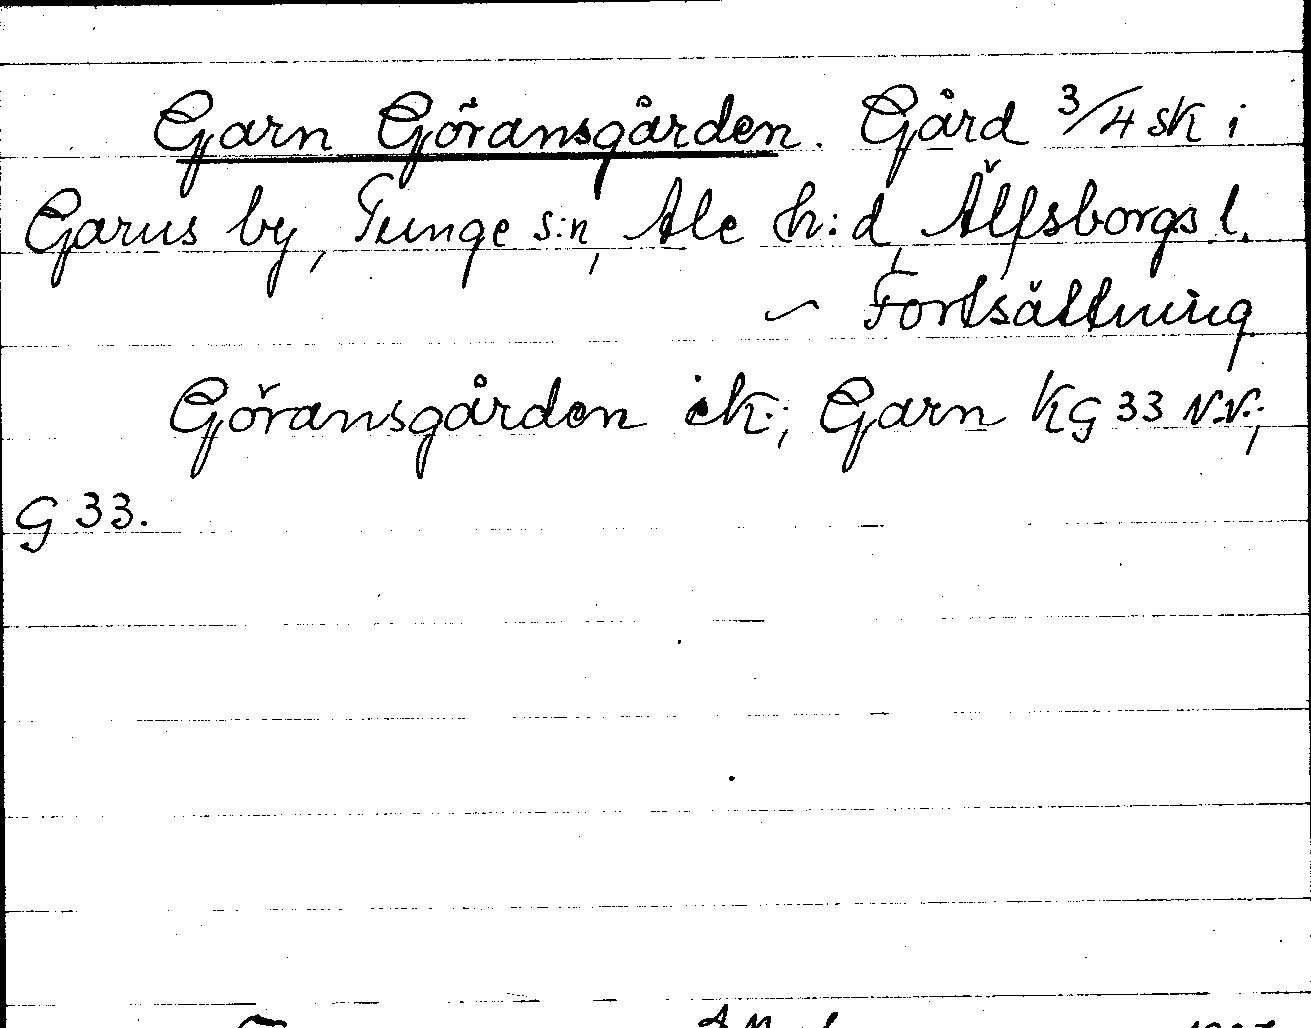 Garn Göransgården. Gård 3/4 sk i
Garns by, Tunge s:n, Ale h:d, Älfsborgs l.
~ Fortsättning
Göransgården ek.; Garn KG 33 N.V.;
G 33.